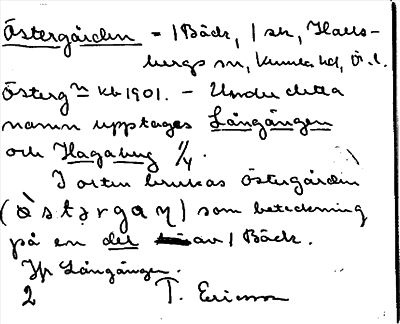 Östergården = 1 Bäck, 1 sk, Halls-
bergs sn, Kumla hd, Ör. l.
Österg n kb 1901. - Under detta
namn upptages Långängen
och Hagaberg 1/4.
I orten brukas Östergården
(östərgaŋ) som beteckning
på en del av 1 Bäck.
Jfr Långängen.
2 T. Ericsson